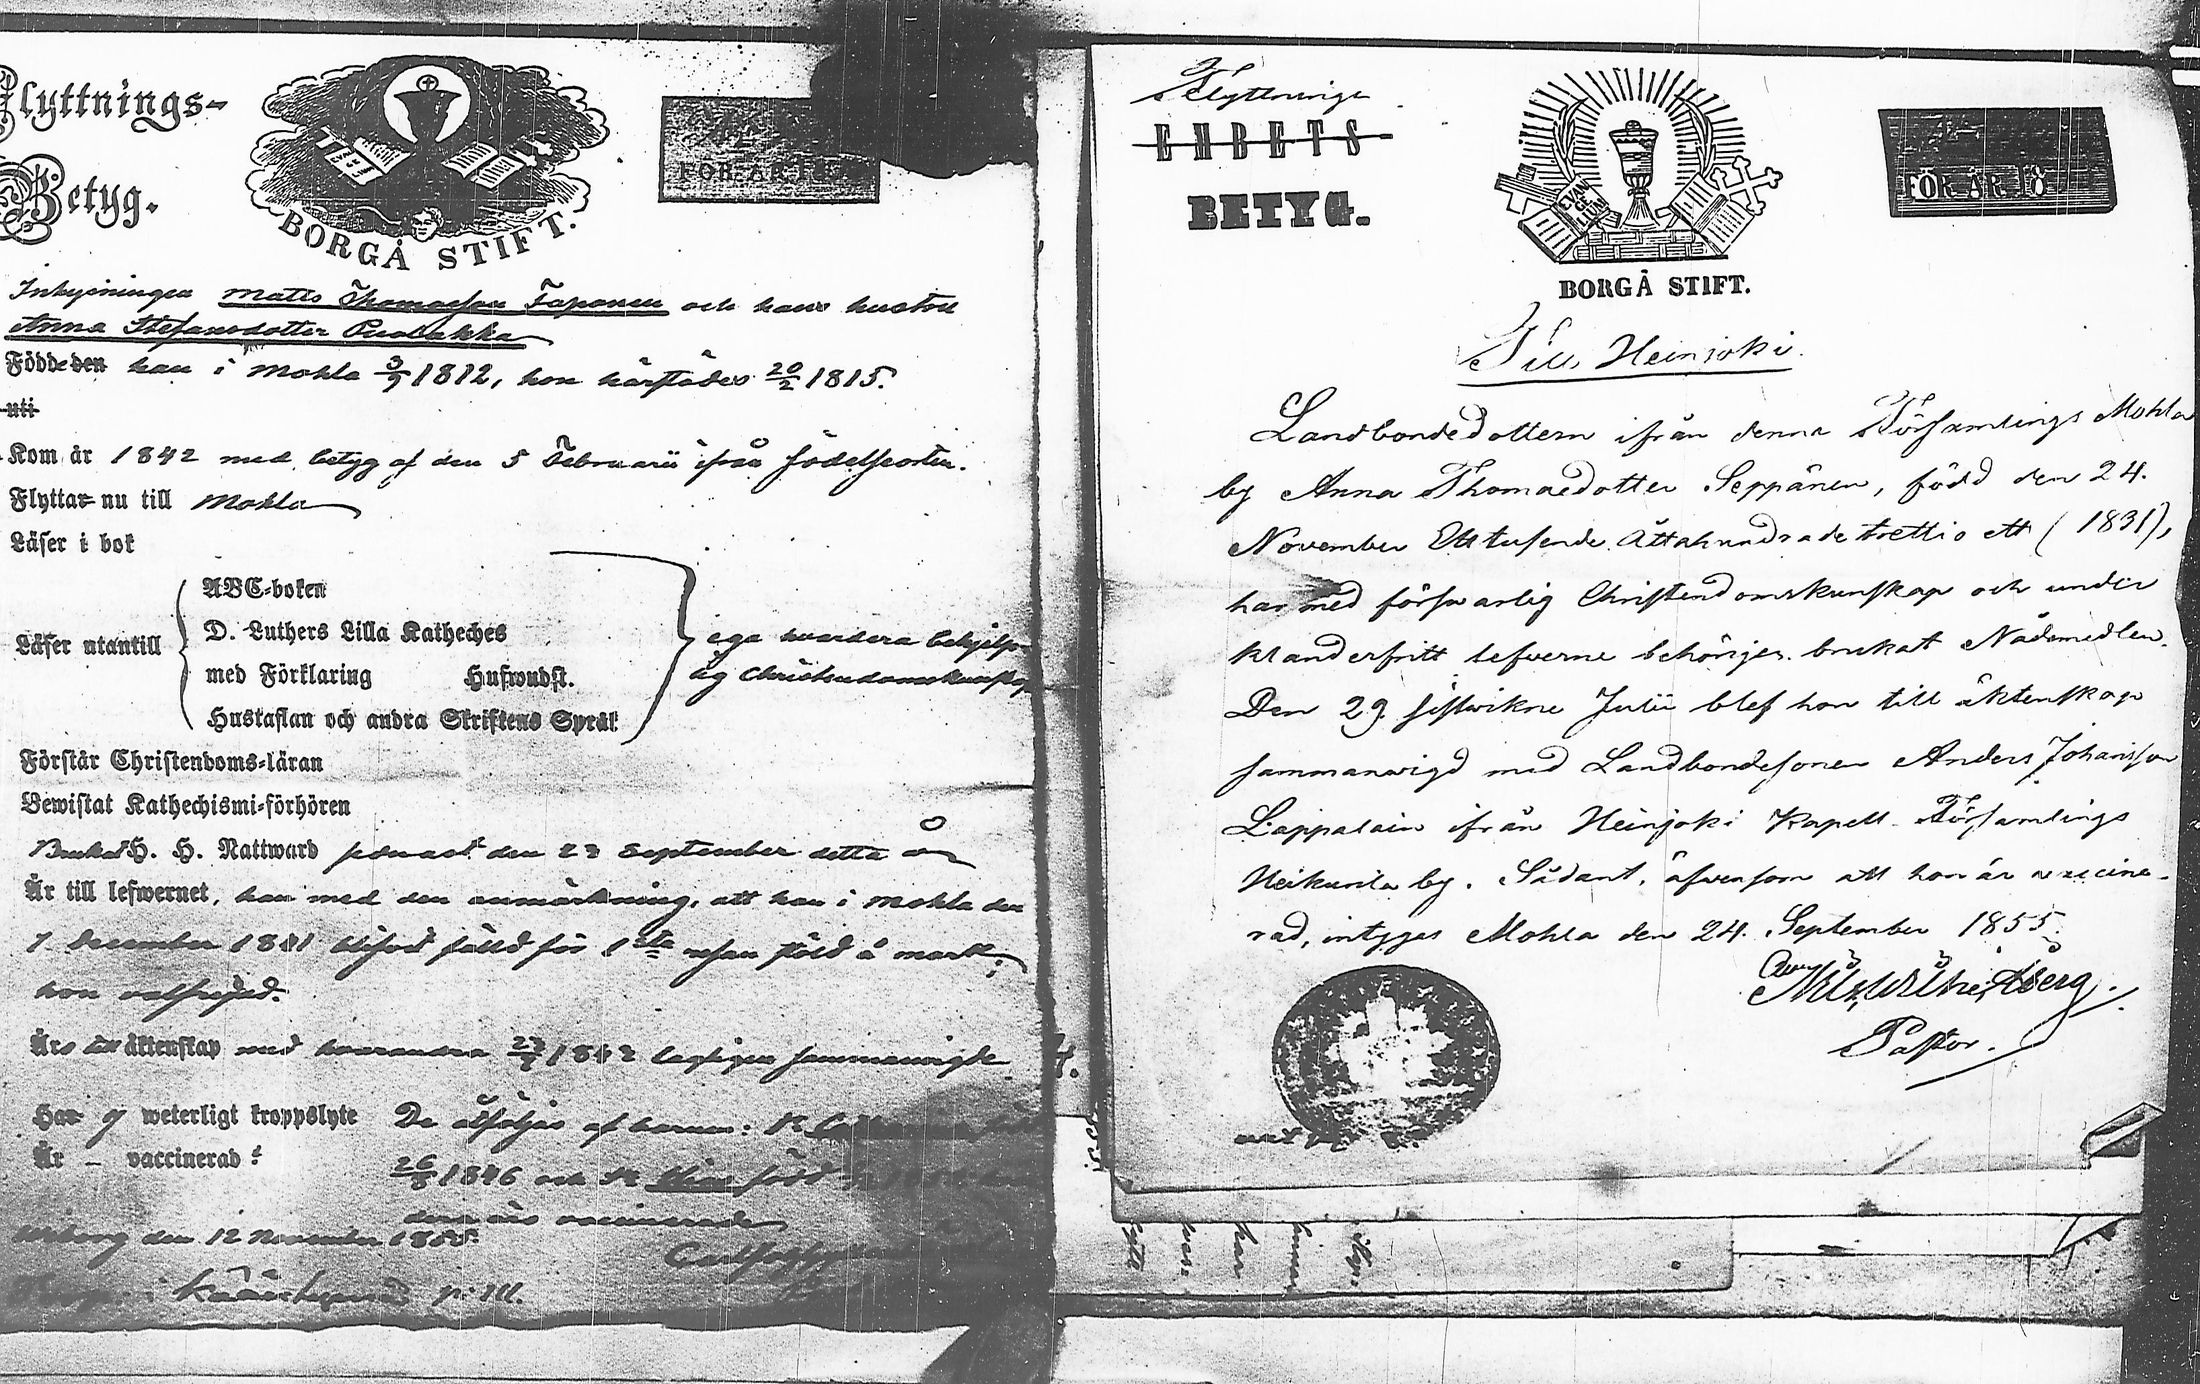 Flyttnings-
Betyg.
BORGÅ STIFT.
FÖR ÅR 18
Inhysningen Matts Thomasson Taponen och hans hustru
Anna Stefansdotter Puolakka
Födde den han i Mohla 3/9 1812, hon härstädes 20/2 1815.
uti
Kom år 1842 med betyg af den 5 Februarii ifrån födelseorten.
Flyttar nu till Mohla
Läser i bok
ABC-boken
Läser utantill
D. Luthers Lilla Katheches
med Förklaring Husw
Hustaflan och andra Skriftens Språk
ega hvardera behjelp-
lig Christendomskunskap
Förstår Christendoms-läran
Bewistat Kathechismi-förhören
Brukat H. H. Nattward senast den 23 September detta år
Är till lefwernet, han med den anmärkning, att han i Mohla den
7 December 1841 blifvit fälld för 1sta resan stöld å mark;
hon välfrejdad.
Äro till äktenskap med hvarandra 1842 lagligen sammanvigde
Har ej weterligt kroppslyte De åtföljas af barnen:
Är – vaccinerad
1846 och född
äro vaccinerade
Wiborg den 12 November 1855.
Flyttnings
EMBETS
BETYG.
EVAN
GE
LIUM
BORGÅ STIFT.
FÖR ÅR 18
Till Heinjoki.
Landbondedottern ifrån denna Församlings Mohla
by Anna Thomasdotter Seppänen, född den 24.
November Ett tusende Åttahundrade trettio ett (1831),
har med försvarlig Christendomskunskap och under
klanderfritt lefverne behörigen brukat Nådemedlen.
Den 29. sistvikne Julii blef hon till äktenskap
sammanvigd med Landbondesonen Anders Johansson
Lappalain ifrån Heinjoki Kapell-Församlings
Heikurila by. Sådant, äfvensom att hon är vaccine-
rad, intygas Mohla den 24. September 1855.
Berg.
Pastor.